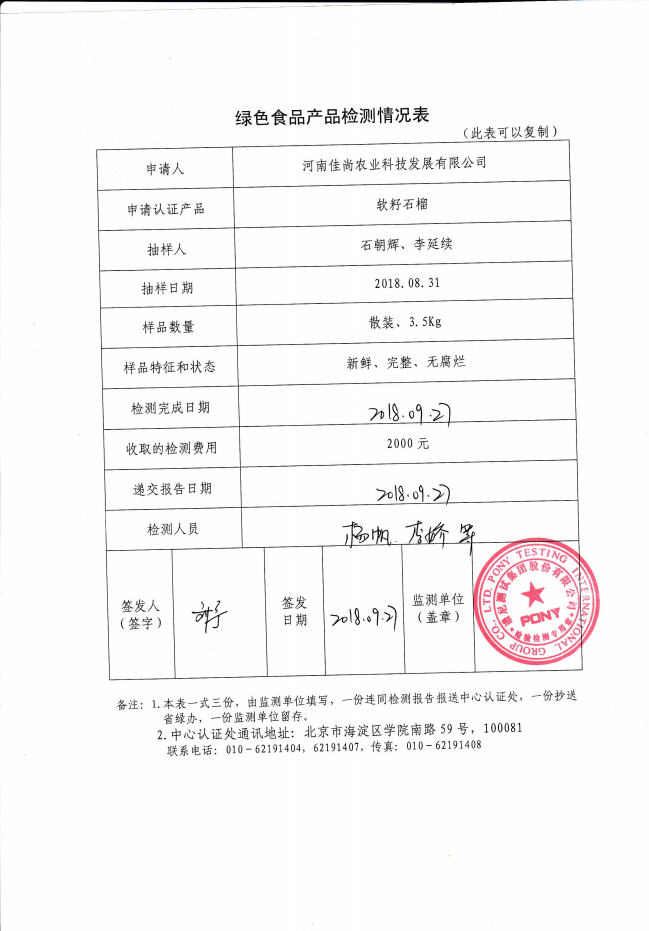 绿色食品产品检测情况表
（此表可以复制）
申请人 河南佳尚农业科技发展有限公司
申请认证产品 软籽石榴
抽样人 石朝辉、李延续
抽样日期 2018.08.31
样品数量 散装、3.5Kg
样品特征和状态 新鲜、完整、无腐烂
检测完成日期 2018.09.27
收取的检测费用 2000元
递交报告日期 2018.09.27
检测人员 杨帆 李娇 等
签发人
（签字）
签发
日期
2018.09.27
监测单位
（盖章）
PONY TESTING INTERNATIONAL GROUP CO., LTD.
谱尼测试集团股份有限公司
PONY
检验检测专用章
备注：1.本表一式三份，由监测单位填写，一份连同检测报告报送中心认证处，一份抄送
省绿办，一份监测单位留存。
2.中心认证处通讯地址：北京市海淀区学院南路59号，100081
联系电话：010－62191404，62191407，传真：010－62191408